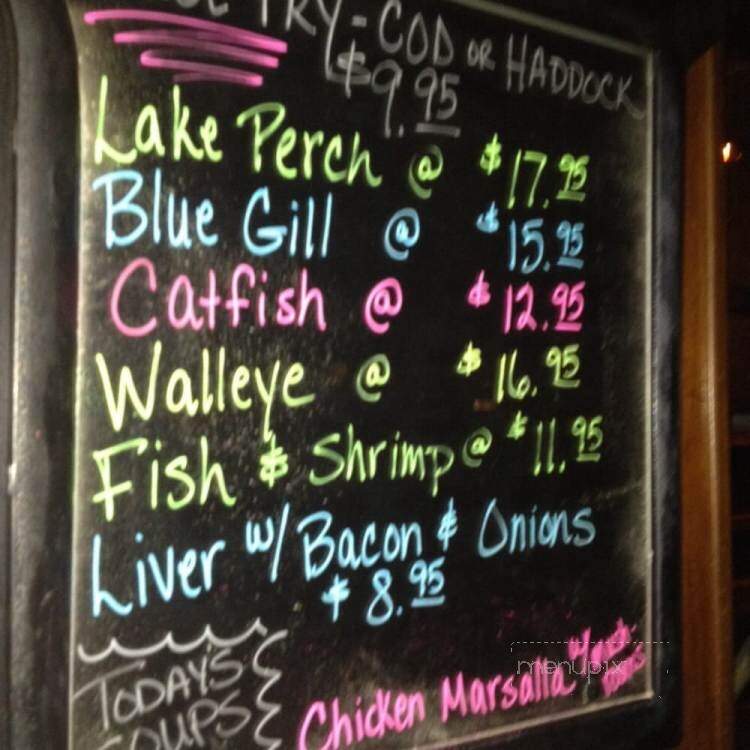 FRY - COD OR HADDOCK
$9.95
Lake Perch @ $17.95
Blue Gill @ $15.95
Catfish @ $12.95
Walleye @ $16.95
Fish & Shrimp @ $11.95
Liver w/ Bacon & Onions
$8.95
TODAY'S
SOUPS
Chicken Marsalla
menupix